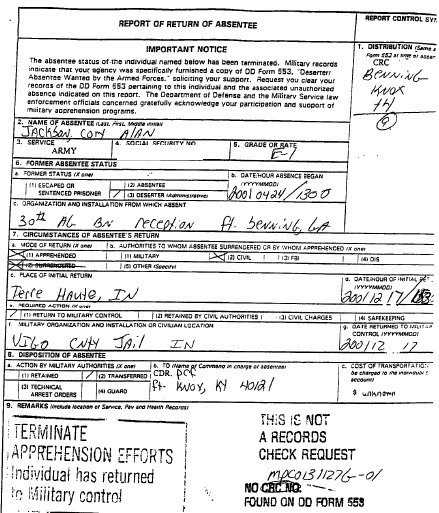 REPORT OF RETURN OF ABSENTEE
REPORT CONTROL SY
IMPORTANT NOTICE
The absentee status of the individual named below has been terminated. Military records
indicate that your agency was specifically furnished a copy of DD Form 553, "Deserter/
Absentee Wanted by the Armed Forces," soliciting your support. Request you clear your
records of the DD Form 553 pertaining to this individual and the associated unauthorized
absence indicated on this report. The Department of Defense and the Military Service law
enforcement officials concerned gratefully acknowledge your participation and support of
military apprehension programs.
1. DISTRIBUTION (Same a
Form 553 at time of absen
CRC
Benning
Knox
2. NAME OF ABSENTEE (Last, First, Middle Initial)
Jackson, Cory Alan
3. SERVICE
ARMY
4. SOCIAL SECURITY NO.
5. GRADE OR RATE
E-1
6. FORMER ABSENTEE STATUS
a. FORMER STATUS (X one)
(1) ESCAPED OR
SENTENCED PRISONER
(2) ABSENTEE
(3) DESERTER (Administrative)
b. DATE/HOUR ABSENCE BEGAN
(YYYYMMDD)
20010424/1300
c. ORGANIZATION AND INSTALLATION FROM WHICH ABSENT
30th AG BN reception ft. benning, GA
7. CIRCUMSTANCES OF ABSENTEE'S RETURN
a. MODE OF RETURN (X one)
(1) APPREHENDED
(2) SURRENDERED
b. AUTHORITIES TO WHOM ABSENTEE SURRENDERED OR BY WHOM APPREHENDED (X one)
(1) MILITARY
(2) CIVIL
(3) FBI
(4) DIS
(5) OTHER (Specify)
c. PLACE OF INITIAL RETURN
Terre Haute, IN
d. DATE/HOUR OF INITIAL
(YYYYMMDD)
200112 17/
e. REQUIRED ACTION (X one)
(1) RETURN TO MILITARY CONTROL
(2) RETAINED BY CIVIL AUTHORITIES
(3) CIVIL CHARGES
(4) SAFEKEEPING
f. MILITARY ORGANIZATION AND INSTALLATION OR CIVILIAN LOCATION
Vigo Cnty Jail IN
g. DATE RETURNED TO MILITAR
CONTROL (YYYYMMDD)
200112 17
8. DISPOSITION OF ABSENTEE
a. ACTION BY MILITARY AUTHORITIES (X one)
(1) RETAINED
(2) TRANSFERRED
(3) TECHNICAL
ARREST ORDERS
(4) GUARD
b. TO (Name of Command in charge of absentee)
CDR. PCF
ft. Knox, KY 40121
c. COST OF TRANSPORTATION
be charged to the individual's
account)
$ unknown
9. REMARKS (Include location of Service, Pay and Health Records)
TERMINATE
APPREHENSION EFFORTS
Individual has returned
to Military control
THIS IS NOT
A RECORDS
CHECK REQUEST
MPC0131127G-01
NO CRC NO.
FOUND ON DD FORM 553